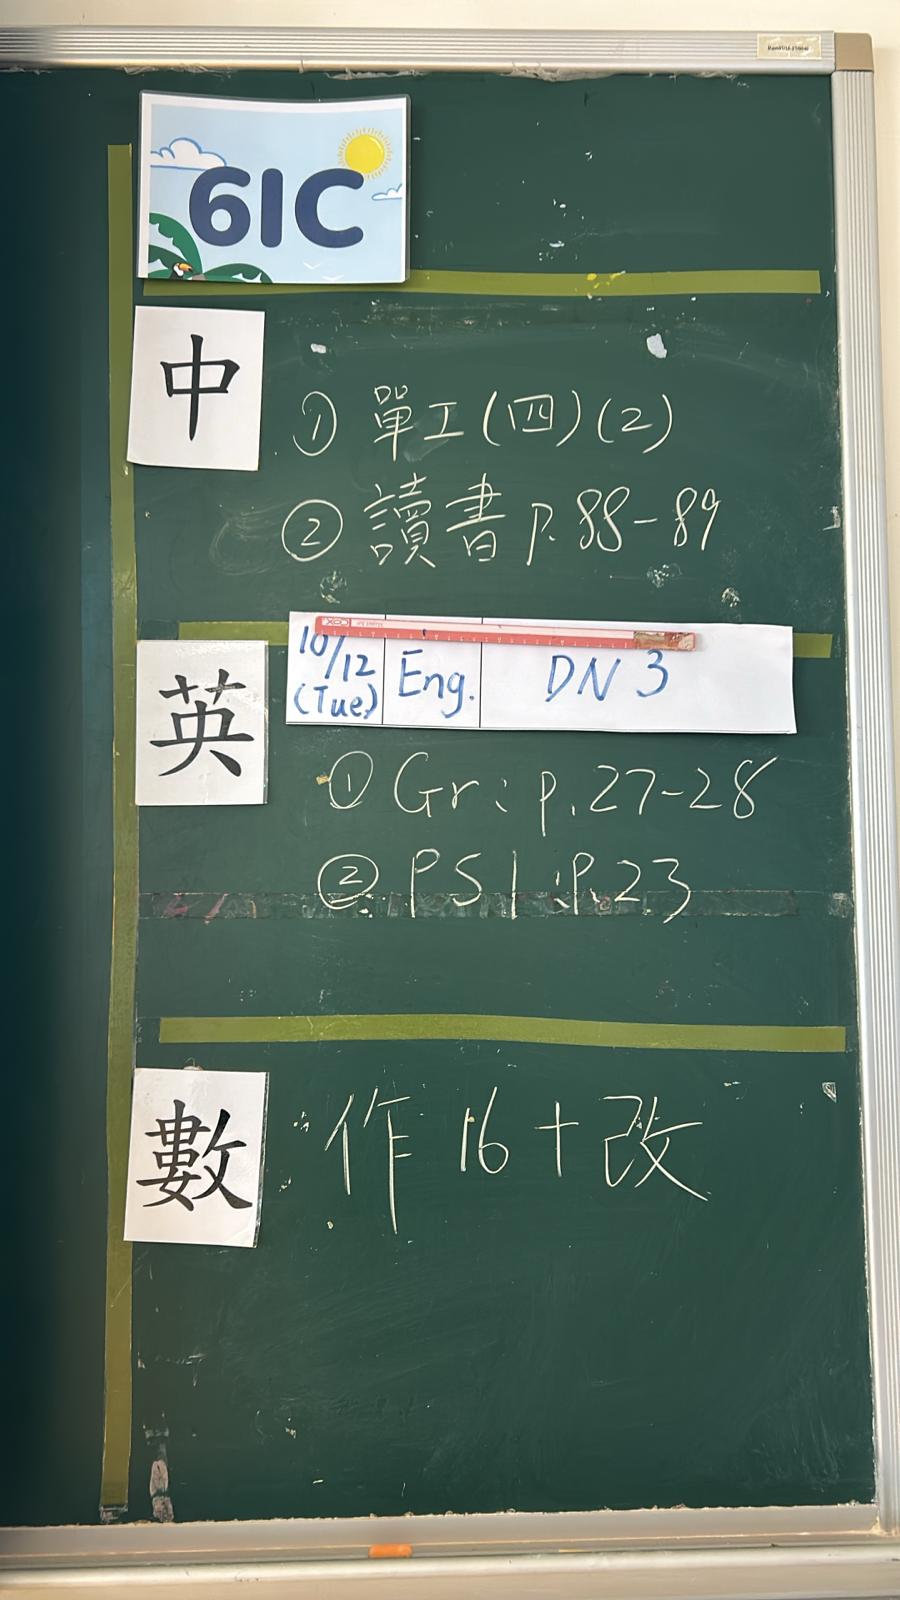 61C
中
① 單工(四)(2)
② 讀書 p.88-89
英
10/12 (Tue) Eng. DN 3
① Gr: p.27-28
② PS1: P.23
數
作16+改